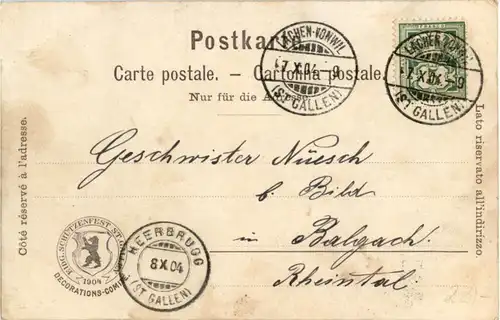 Postkarte.
LACHEN-VONWIL
-7.X.04.-9
(ST GALLEN)
LACHEN-VONWIL
-7.X.04.-9
(ST GALLEN)
Carte postale. – Cartolina postale.
Nur für die Adresse.
Côté réservé à l'adresse.
Lato riservato all'indirizzo.
Geschwister Nüesch
b. Bild
in Balgach.
Rheintal
EIDG. SCHÜTZENFEST ST. GALLEN
1904
DECORATIONS-COMITÉ
HEERBRUGG
8.X.04
(ST GALLEN)